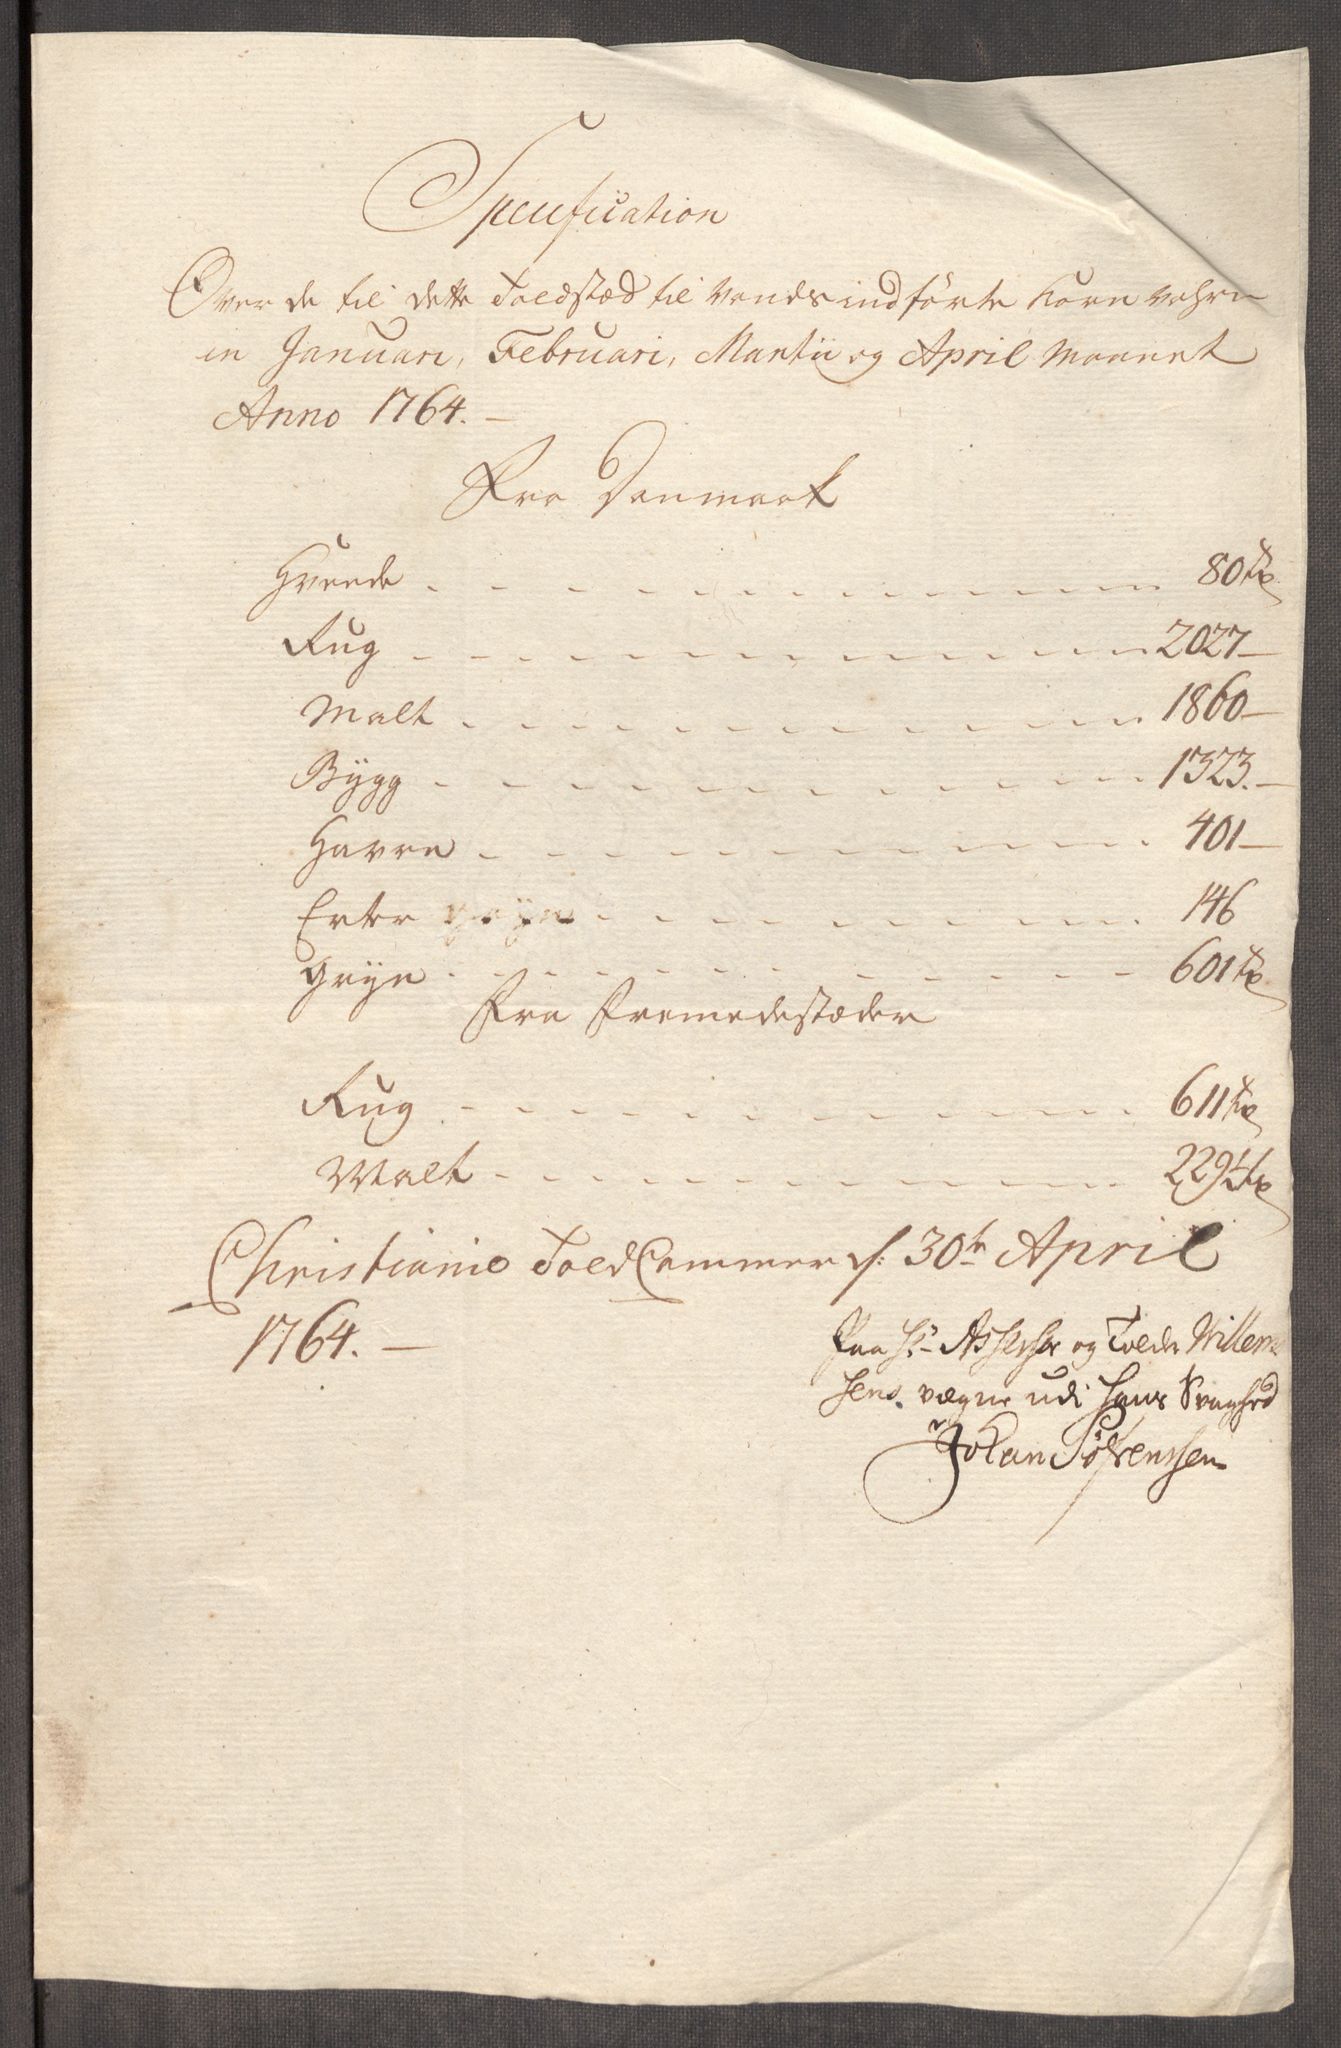 Specification
Over de til dette Toldstæd til Vands indførte Korn Vahre
in Januari, Februari, Martii og April Maanet
Anno 1764. —
Fra Danmark
Hvede - - - 80 tr
Rug - - - 2027 —
Malt - - - 1860 —
Bÿgg - - - 1323. —
Havre - - - 401 —
Erter - - - 146
Grÿn - - - 601 tr
Fra Fremmede stæder
Rug - - - 611 tr
Malt - - - 229½ tr
Christiania Told Cammer d: 30te April
1764. —
Paa Hr Assessor og Tolder Willem
sens. vægne udi Hans Svaghed
Johan Sørenssen